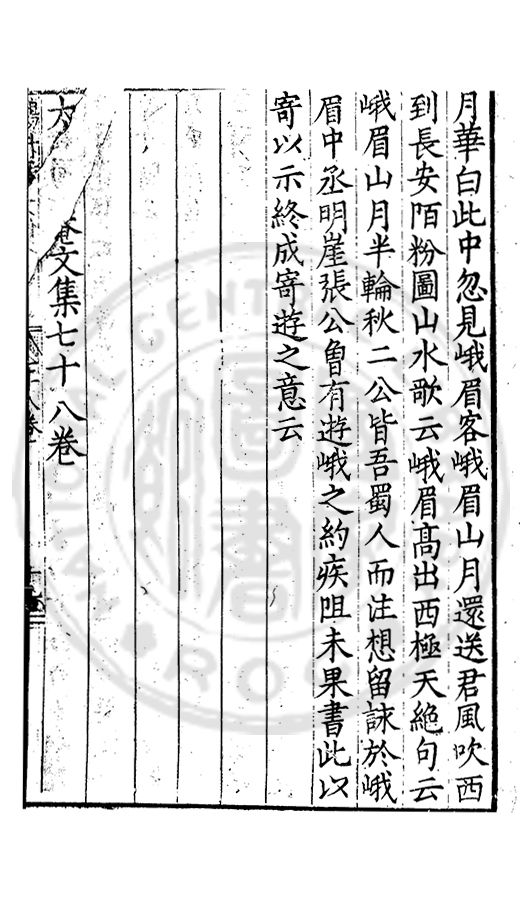 月華白此中忽見峨眉客峨眉山月還送君風吹西
到長安陌粉圖山水歌云峨眉髙出西極天絶句云
峨眉山月半輪秋二公皆吾蜀人而注想留詠於峨
眉中丞明崖張公曾有遊峨之約疾阻未果書此以
寄以示終成寄遊之意云
文集七十八卷